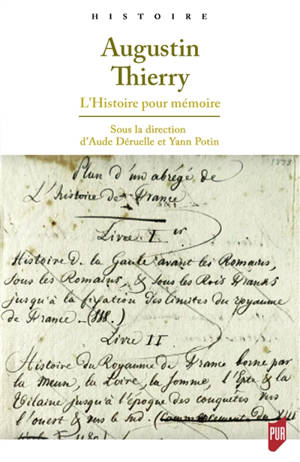 HISTOIRE
Augustin
Thierry
L'Histoire pour mémoire
Sous la direction
d'Aude Déruelle et Yann Potin
Plan d'un abrégé de
L'histoire de France
Livre Ier
Histoire de la Gaule avant les Romains,
sous les Romains, & sous les Rois Franks
jusqu'à la fixation des limites du royaume
de France – 888.)
Livre II
Histoire du Royaume de France borné par
la Meuse, la Loire, la Somme, l'Epte & la
Vilaine jusqu'à l'époque des conquêtes
vers l'ouest & vers le sud. (Commencement du
PUR